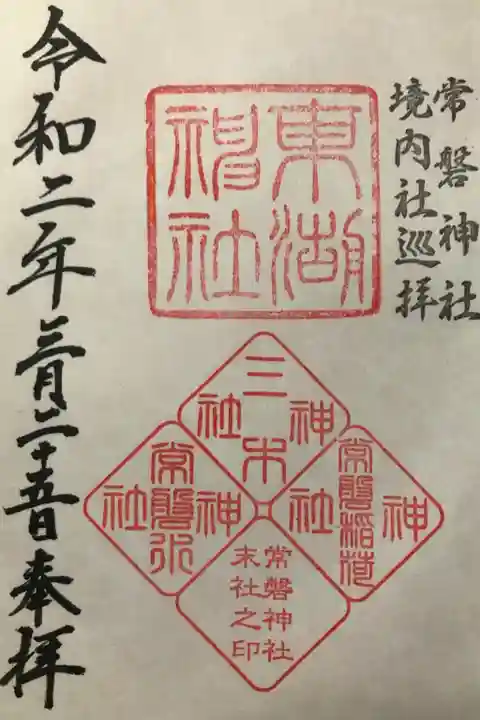 常磐神社
境内社巡拝
東湖
神社
三木
神社
常磐稲荷
神社
常磐水
神社
常磐神社
末社之印
令和二年三月二十五日奉拝